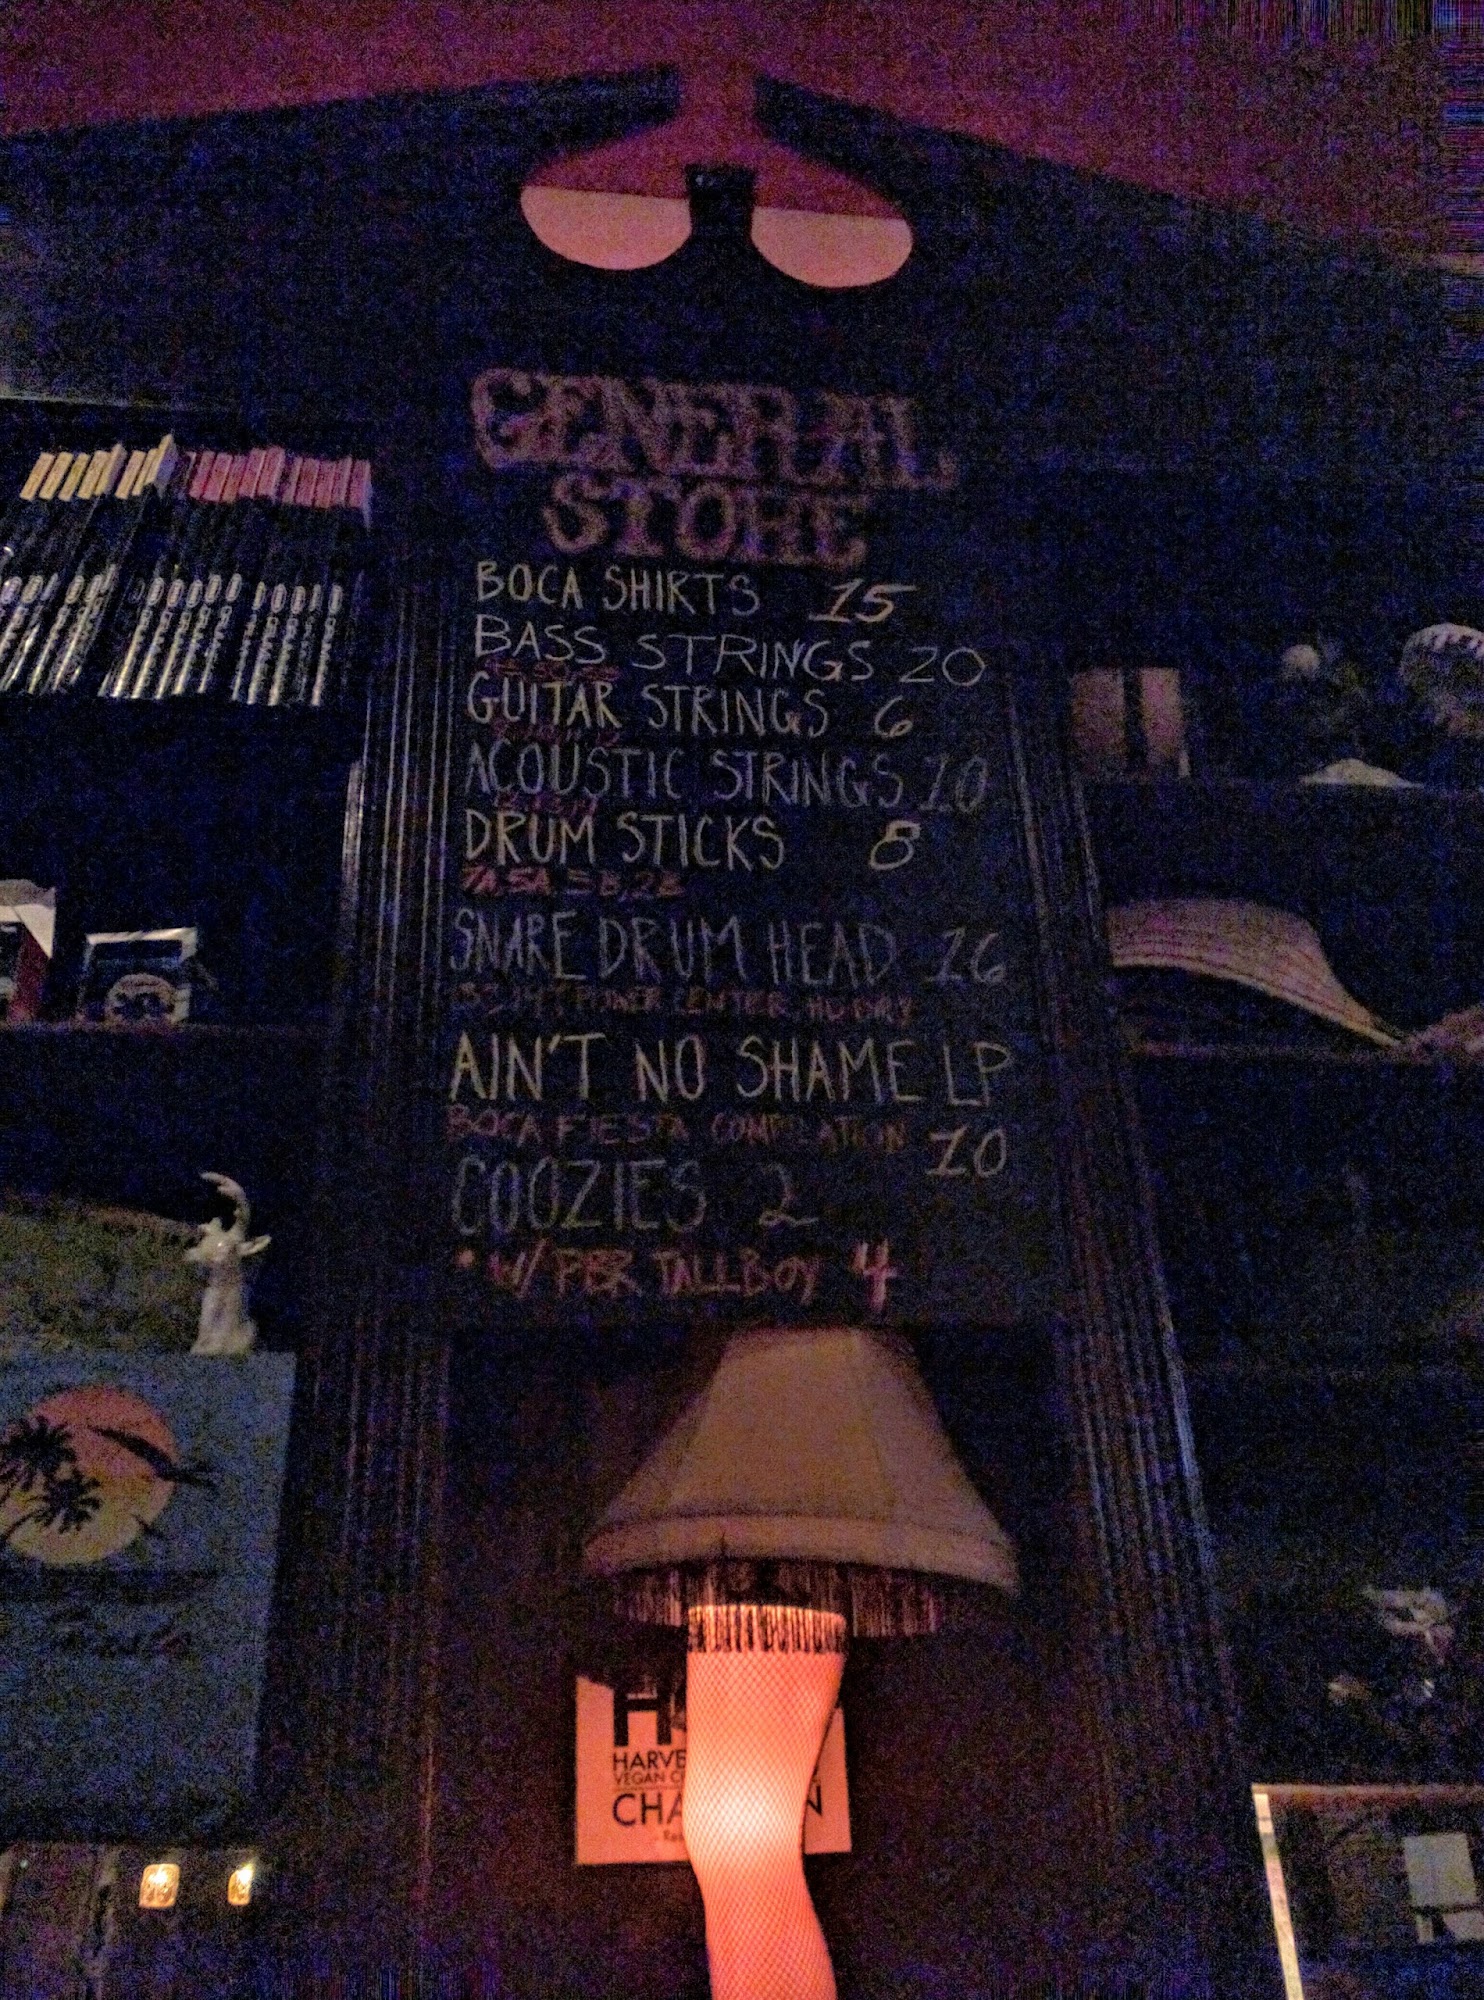 GENERAL
STORE
BOCA SHIRTS 15
BASS STRINGS 20
GUITAR STRINGS 6
ACOUSTIC STRINGS 10
DRUM STICKS 8
7A, 5A, 5B, 2B
SNARE DRUM HEAD 16
POWER CENTER
AIN'T NO SHAME LP
BOCA FIESTA COMPILATION 10
COOZIES 2
• W/ PBR TALLBOY 4
HARVE
VEGAN C
CHA N